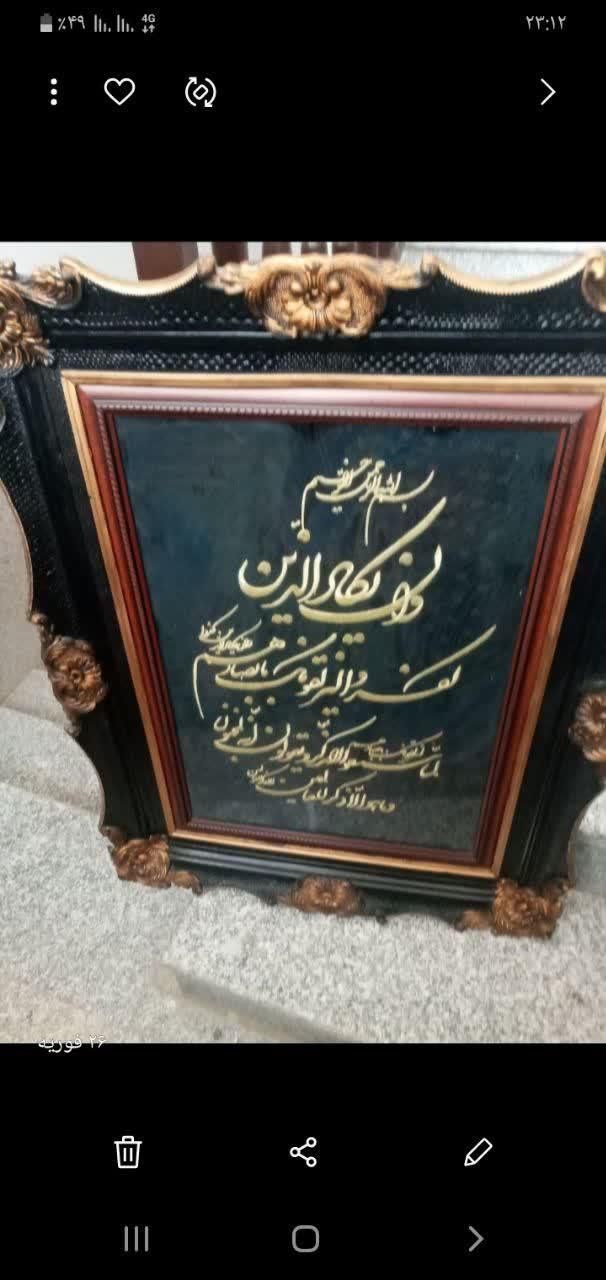 ٪۴۹ 4G ۲۳:۱۲
بسم الله الرحمن الرحیم
وان یکاد الذین
کفروا لیزلقونک بابصارهم
لما سمعوا الذکر و یقولون انه لمجنون
وما هو الا ذکر للعالمین
۲۶ فوریه